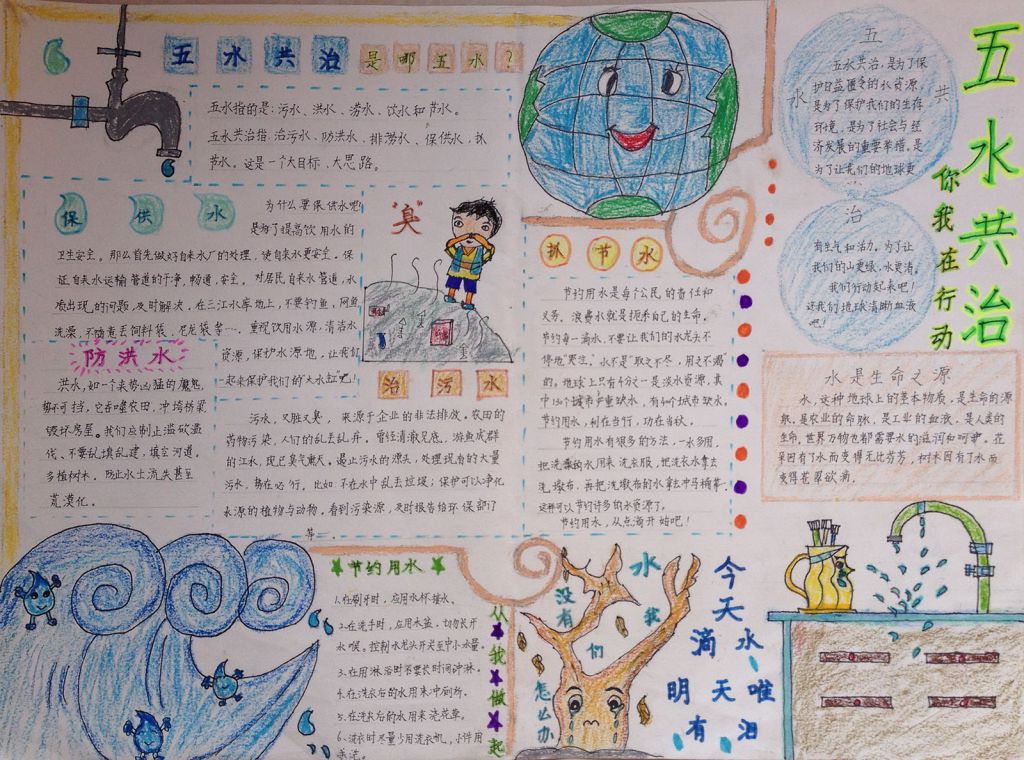 五水共治是哪五水？
五水指的是:污水、洪水、涝水、饮水和节水。
五水共治指:治污水、防洪水、排涝水、保供水、抓
节水。这是一个大目标、大思路。
保供水
为什么要保供水呢?
是为了提高饮用水的
卫生安全。那么首先做好自来水厂的处理,使自来水更安全。保
证自来水运输管道的干净,畅通,安全。对居民自来水管道,水
质出现的问题,及时解决。在三江水库地上,不要钓鱼,网鱼,
洗澡,不随意丢饮料袋、尼龙袋等…,重视饮用水源,清洁水
资源,保护水源地,让我们
一起来保护我们的"大水缸"吧!
"臭"
防洪水
洪水,如一个来势凶猛的魔鬼,
势不可挡,它吞噬农田,冲垮桥梁
毁坏房屋。我们应制止滥砍滥
伐、不要乱填乱建,填空河道。
多植树木。防止水土流失甚至
荒漠化。
治污水
污水,又脏又臭,来源于企业的非法排放。农田的
药物污染,人们的乱丢乱弃。曾经清澈见底,游鱼成群
的江水,现已臭气熏天。遏止污水的源头,处理现有的大量
污水,势在必行。比如不在水中乱丢垃圾;保护可以净化
水源的植物与动物。看到污染源,及时报告给环保部门
等…
抓节水
节约用水是每个公民的责任和
义务。浪费水就是扼杀自己的生命。
节约每一滴水,不要让我们的水龙头不
停地"哭泣"。水不是"取之不尽,用之不竭"
的。地球上只有4分之一是淡水资源,其
节约用水,利在当行,功在千秋。
节约用水有很多的方法,一水多用,
把洗澡的水用来洗衣服,把洗衣水拿去
洗墩布,再把洗墩布的水拿来冲马桶等…
这样可以节约许多的水资源了。
节约用水,从点滴开始吧!
五水共治
你我在行动
五水共治
五水共治,是为了保
护日益匮乏的水资源,
是为了保护我们的生存
环境,是为了社会与经
济发展的重要举措,是
为了让我们的地球更
有生气和活力。为了让
我们的山更绿,水更清。
我们行动起来吧!
让我们地球清晰血液
吧!
水是生命之源
水,这种地球上的基本物质,是生命的源
泉,是农业的命脉,是工业的血液,是人类的
生命,世界万物也都需要水的滋润和呵护。花
朵因有了水而变得无比芬芳,树木因有了水而
变得苍翠欲滴。
节约用水
1.在刷牙时,应用水杯接水。
2.在洗手时,应用水盆,切勿长开
水喉。控制水龙头开关至中小水量。
3.在用淋浴时不要长时间冲淋。
4.在洗衣后的水用来冲厕所。
5.在洗衣后的水用来浇花草。
6.洗衣时尽量少用洗衣机,小件用
手洗。
从我做起
没有水我们怎么办
今天滴水
明天唯有泪